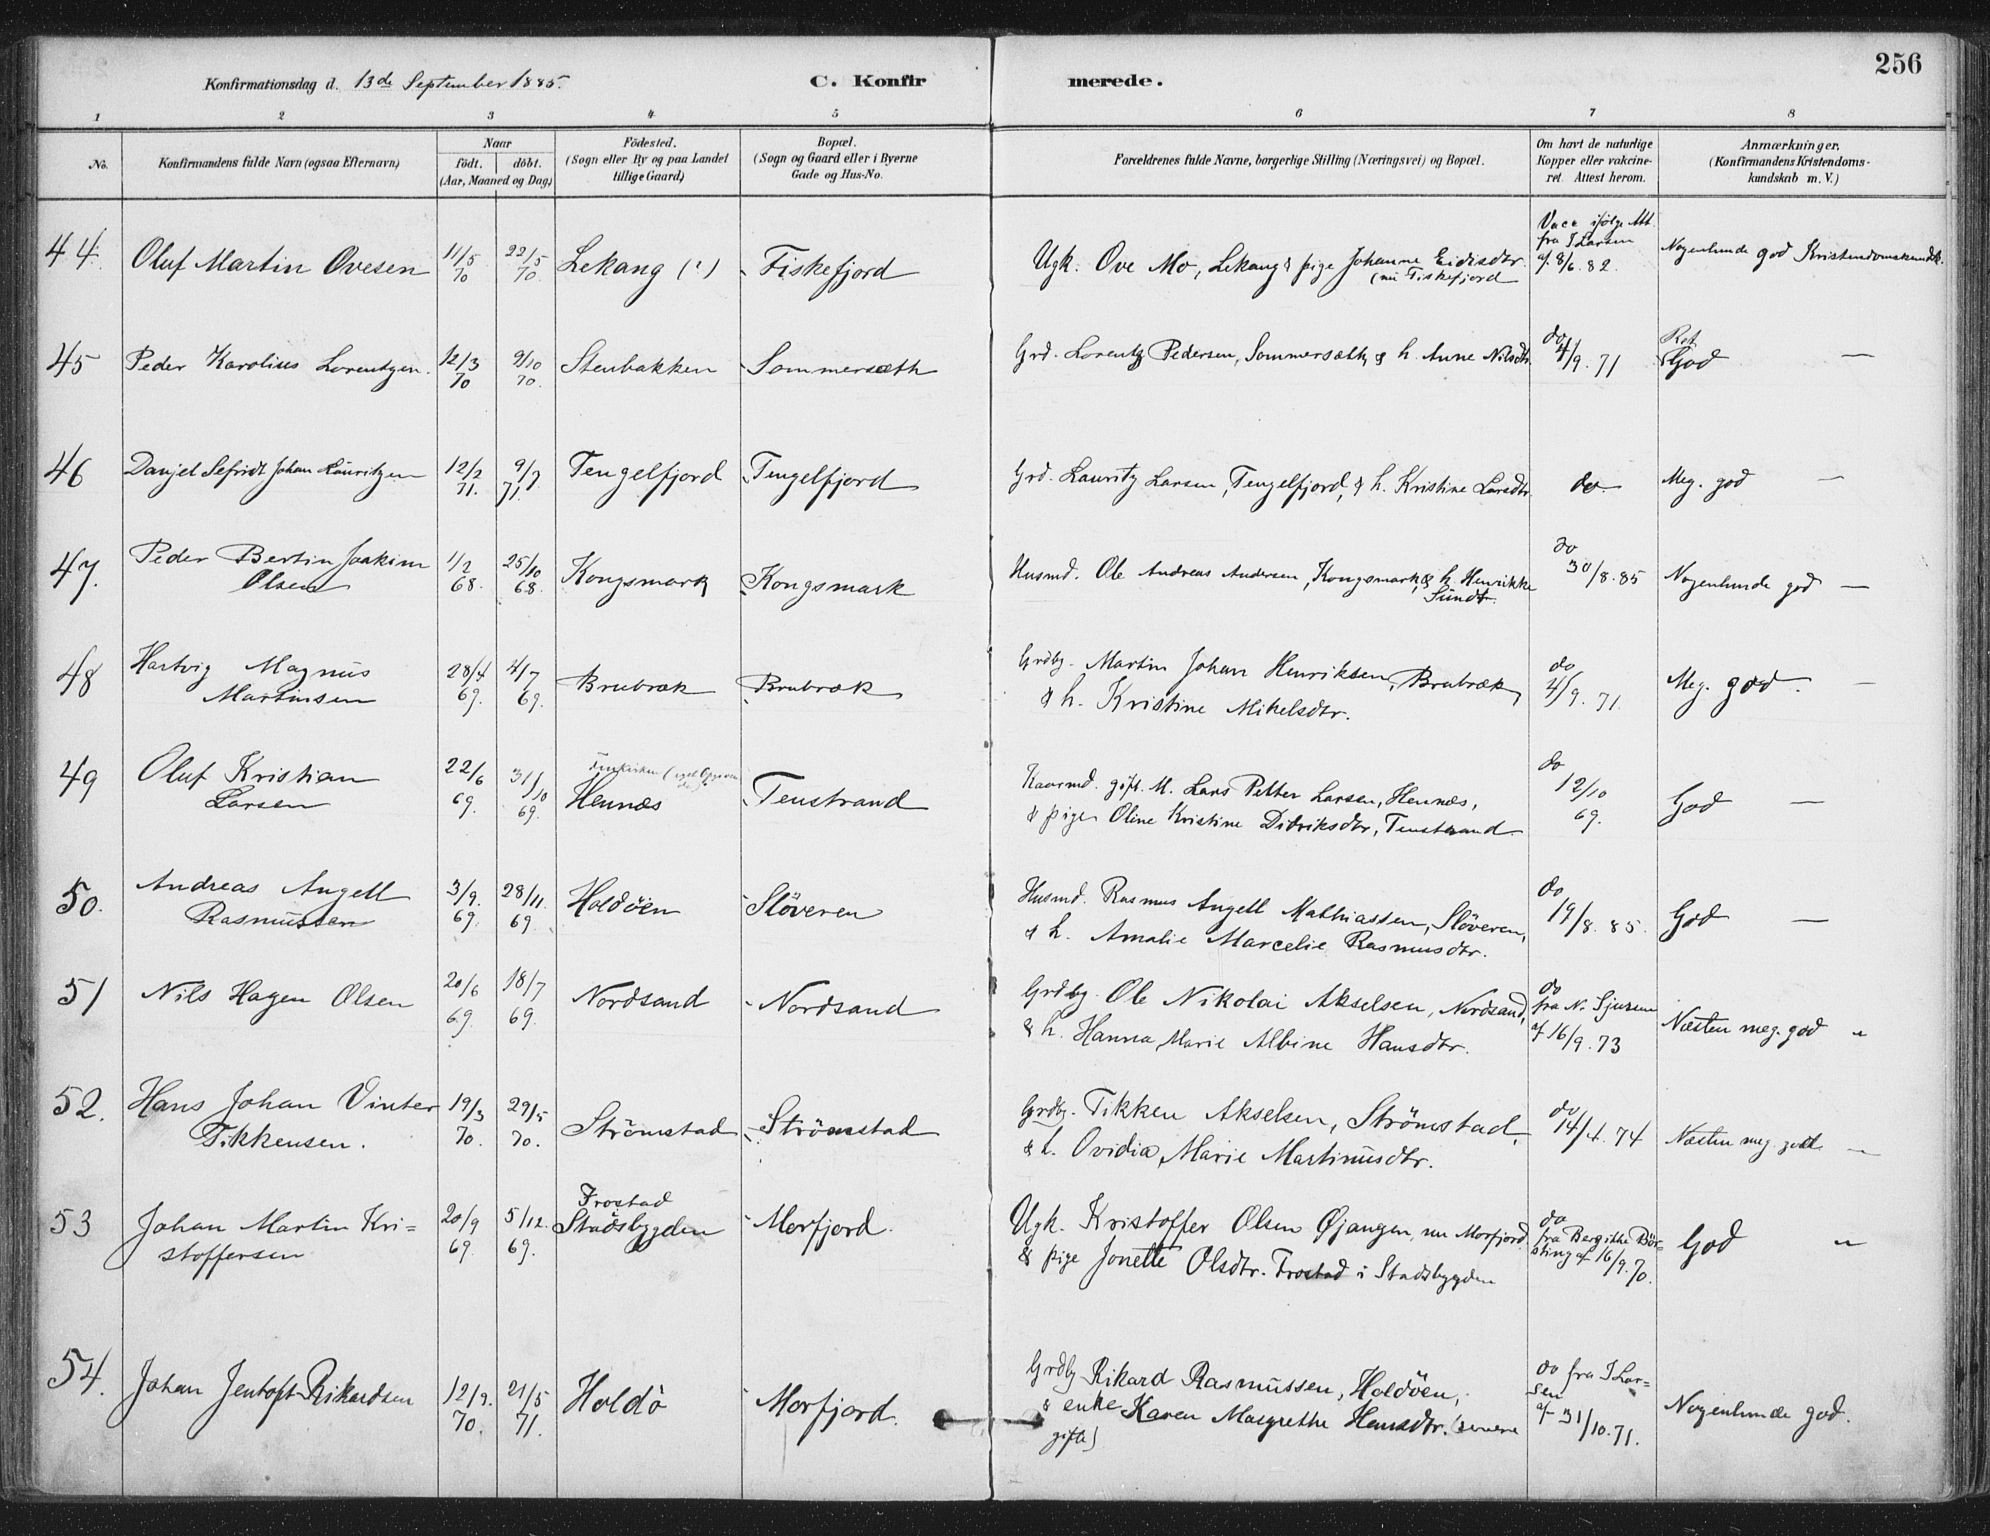 256
Konfirmationsdag d. 13de September 1885.
C. Konfirmerede.
1 2 3 4 5 6 7 8
No.
Konfirmandens fulde Navn (ogsaa Efternavn)
Naar
födt. döbt.
(Aar, Maaned og Dag.)
Födested.
(Sogn eller By og paa Landet
tillige Gaard.)
Bopæl.
(Sogn og Gaard eller i Byerne
Gade og Hus-No.
Forældrenes fulde Navne, borgerlige Stilling (Næringsvei) og Bopæl.
Om havt de naturlige
Kopper eller vakcine-
ret. Attest herom.
Anmærkninger.
(Konfirmandens Kristendoms-
kundskab m. V.)
44. Oluf Martin Ovesen 11/5 70 22/5 70. Lekang (') Fiskefjord
Ugk. Ove Mo, Lekang & pige Johanne Eidisdtr.
(nu Fiskefjord
Vacc ifölge Att.
fra J Larsen
af 8/6. 82.
Nogenlunde god Kristendomskundsk.
45 Peder Karolius Lorentzen. 12/3 70 9/10 70. Stenbakken Sommersæth
Grd. Lorentz Pedersen, Sommersæth, & h. Anne Nilsdtr.
do 4/9. 71
God —
46 Danjel Sefridt Johan Lauritzen 12/2 71. 9/7 71. Tengelfjord Tengelfjord
Grd. Lauritz Larsen, Tengelfjord, & h. Kristine Larsdtr.
do
Meg. god —
47. Peder Bertin Joakim
Olsen 1/2 68. 25/10 68. Kongsmark Kongsmark
Husmd. Ole Andreas Andersen, Kongsmark, & h. Henrikke
Sundt.
do
30/8. 85
Nogenlunde god —
48 Hartvig Magnus
Martinsen 28/4 69. 4/7 69. Brubræk Brubræk
Grdbg. Martin Johan Henriksen, Brubræk,
& h. Kristine Mikelsdtr.
do
4/9. 71.
Meg. god. —
49 Oluf Kristian
Larsen 22/6 69. 31/10 69. Hennæs Tenstrand
Kaarmd. gift. M. Lars Petter Larsen, Hennæs,
& pige Oline Kristine Didriksdtr, Tenstrand
do
12/10
69.
God —
50. Andreas Angell
Rasmussen 3/9. 69. 28/11. 69. Holdöen Slöveren
Husmd. Rasmus Angell Mathiassen, Slöveren,
& h. Amalie Marcelie Rasmusdtr.
do
19/8. 85.
God —
51 Nils Hagen Olsen 20/6 69. 18/7 69. Nordsand Nordsand
Grdbg. Ole Nikolai Akselsen, Nordsand,
& h. Hanna Marie Albine Hansdtr.
do
fra N. Sjursen
af 16/9. 73
Næsten meg. god "
52. Hans Johan Vinter
Tikkensen. 19/3 70. 29/5 70. Strömstad Strömstad
Grdbg. Tikken Akselsen, Strömstad,
& h. Ovidia Marie Martinusdtr.
do
14/4. 74
Næsten meg. god —
53 Johan Martin Kri=
stoffersen 20/9 69. 5/12. 69. Frostad
Stadsbygden Morfjord.
Ugk. Kristoffer Olsen Øjangen, nu Morfjord
& pige Jonette Olsdtr. Frostad i Stadsbygden
do
fra Bergitte Bör=
sting af 16/9. 70.
God "
54. Johan Jentoft Rikardsen 12/9. 70. 21/5 71. Holdö Morfjord.
Grdbg Rikard Rasmussen, Holdöen,
& enke Karen Margrethe Hansdtr. (senere
gift)
do fra J Lar=
sen
af 31/10. 71.
Nogenlunde god.